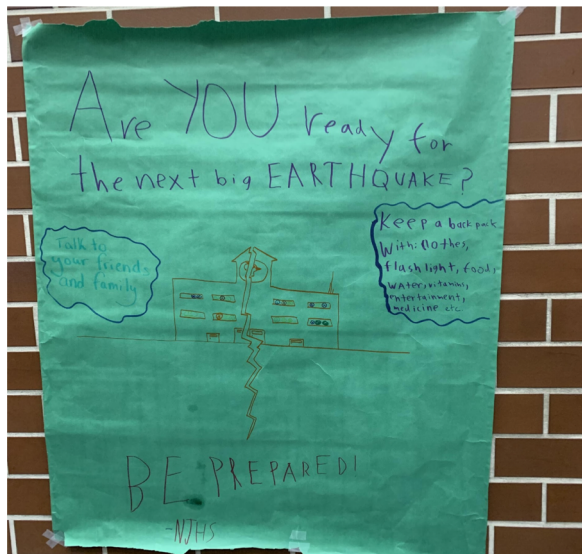 Are YOU ready for
the next big EARTHQUAKE?
Talk to
your friends
and family
Keep a backpack
with: clothes,
flashlight, food,
water, vitamins,
entertainment,
medicine etc
BE PREPARED!
-NJHS